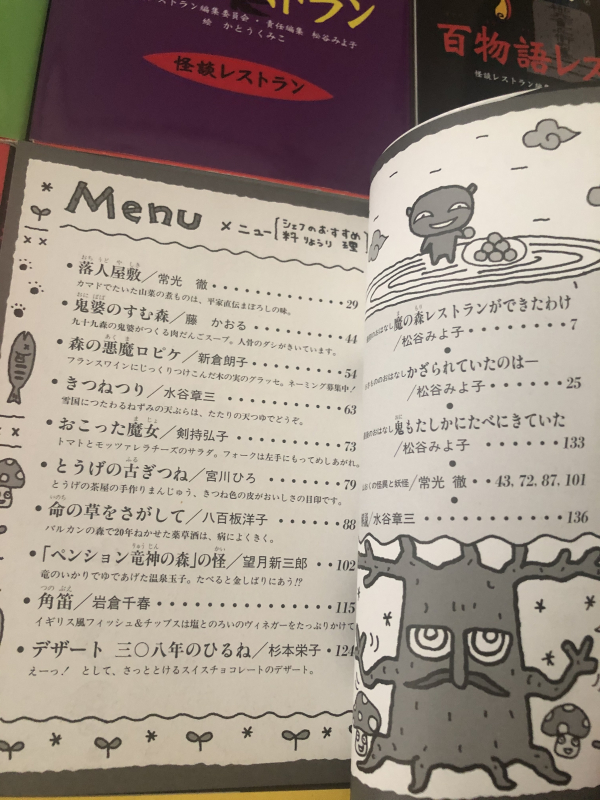 ストラン
レストラン編集委員会・責任編集 松谷みよ子
絵 かとうくみこ
怪談レストラン
百物語レス
怪談レストラン編
Menu
メニュー シェフのおすすめ料理
りょうり
おちうどやしき
落人屋敷/常光 徹・・・29
カマドでたいた山菜の煮ものは、平家直伝まぼろしの味。
おにばば
鬼婆のすむ森/藤 かおる・・・44
九十九森の鬼婆がつくる肉だんごスープ。人骨のダシがきいています。
あくま
森の悪魔ロピケ/新倉朗子・・・54
フランスワインにじっくりつけこんだ木の実のグラッセ。ネーミング募集中!
きつねつり/水谷章三・・・63
雪国につたわるねずみの天ぷらは、たたりの天つゆでどうぞ。
まじょ
おこった魔女/剣持弘子・・・73
トマトとモッツァレラチーズのサラダ。フォークは左手にもってめしあがれ。
ふる
とうげの古ぎつね/宮川ひろ・・・79
とうげの茶屋の手作りまんじゅう、きつね色の皮がおいしさの目印です。
いのち
命の草をさがして/八百板洋子・・・88
バルカンの森で20年ねかせた薬草酒は、病によくきく。
りゅうじん かい
「ペンション竜神の森」の怪/望月新三郎・・102
竜のいかりでゆであげた温泉玉子。たべると金しばりにあう!?
つのぶえ
角笛/岩倉千春・・・115
イギリス風フィッシュ&チップスは塩とのろいのヴィネガーをたっぷりかけて
デザート 三〇八年のひるね/杉本栄子・124
えーっ! として、さっととけるスイスチョコレートのデザート。
ま もり
おはなし魔の森レストランができたわけ
/松谷みよ子・・・7
おはなしかざられていたのは—
/松谷みよ子・・・25
おに
おはなし鬼もたしかにたべにきていた
/松谷みよ子・・・133
くの怪異と妖怪/常光 徹・・43、72、87、101
/水谷章三・・・136